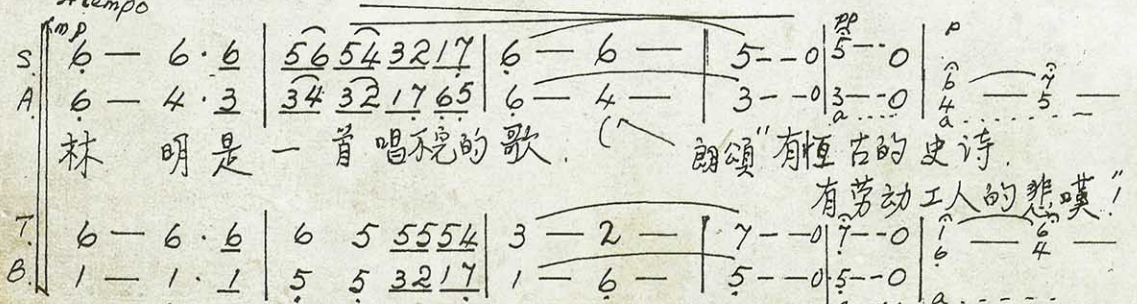 A tempo
mp pp p
S. 6 — 6 · 6 | 56 54 32 17 | 6 — 6 — | 5 - - 0 | 5 - - 0 | 6 — 7
A. 6 — 4 · 3 | 34 32 17 65 | 6 — 4 — | 3 - - 0 | 3 - - 0 | 4 — 5 —
a..... a........
林 明是一首唱不完的歌. ( 朗頌"有恒古的史诗.
有劳动工人的悲嘆!"
T. 6 — 6 · 6 | 6 5 55 54 | 3 — 2 — | 7 - - 0 | 7 - - 0 | 1 — 6
6 — 4 —
B. 1 — 1 · 1 | 5 5 32 17 | 1 — 6 — | 5 - - 0 | 5 - - 0 | a.......